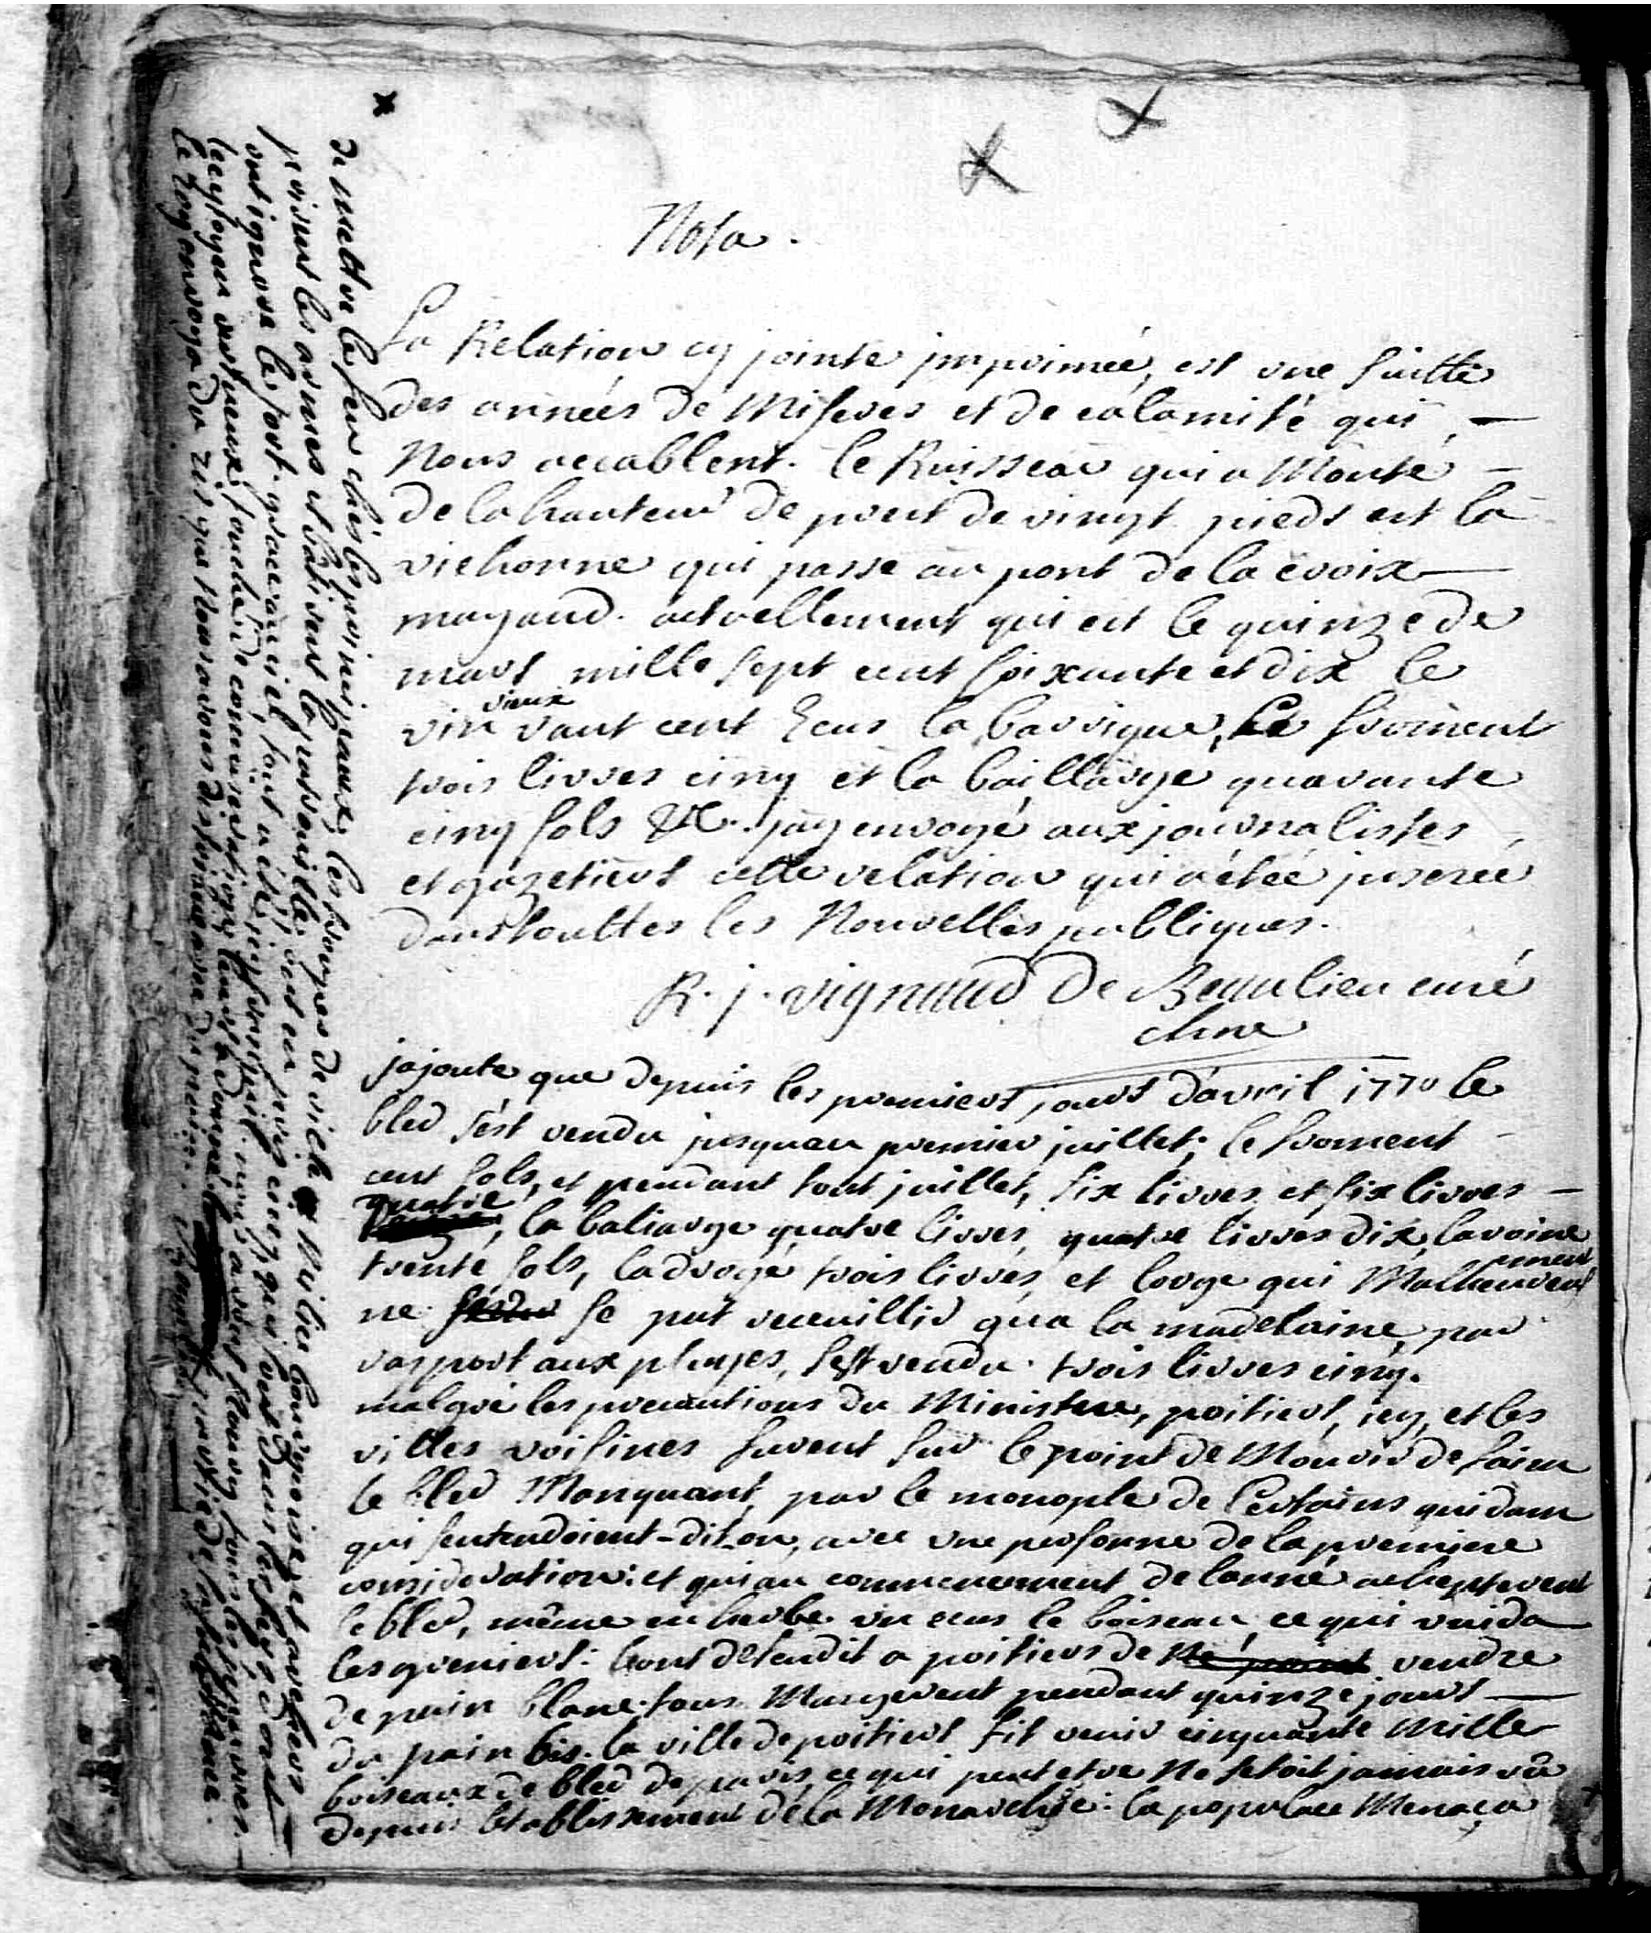 Nota.
La Relation cy jointe imprimée, est une suitte
des années de Miseres et de calamité qui
Nous accablent. le Ruisseau qui a Monté
de la hauteur de prest de vingt pieds est la
viehonne qui passe au pont de la croix
mayaud. actuellement qui est le quinze de
mars mille sept cent soixante et dix le
vin vieux vaut cent Ecus la barrique, Le froment
trois livres cinq et la baillarge quarante
cinq sols &c. jay envoyé aux journalistes
et gazetiers cette relation qui a étée inserée
dans touttes les Nouvelles publiques.
R. j. vignaud De Beaulieu curé
jajoute que depuis les premiers jours d'avril 1770 le
bled s'est vendu jusquau premier juillet, le froment
cent sols, et pendant tout juillet, six livres et six livres
quatre, la baliarge quatre livres, quatre livres dix, lavoine
trente sols, ladroge trois livres, et lorge qui Malheureusement
ne se put receuillir qu'a la madelaine par
rapport aux pluyes, sest vendu trois livres cinq.
malgré les precautions du Ministere, poitiers, icy, et les
villes voisines furent sur le point de Mourir de faim
le bled Manquant, par le monople de Certains quidam
qui sentendoient-dit-on, avec une personne de la premiere
consideration: et qui au commencement de lanné acheptevent
le bled, même en herbe un ecus le boiseau ce qui vuida
les greniers: lont defendit a poitiers de vendre
de pain blanc. tous Mangerent pendant quinze jours
du pain bis. la ville de poitiers fit venir cinquante Mille
boiseaux de bled de paris, ce qui peut etre Ne setoit jamais vû
depuis letablissement de la Monarchie: la populace Menaça
de mettre le feu chés les principaux, les troupes de ville et Milice bourgeoise
prirent les armes et batirent la patrouille